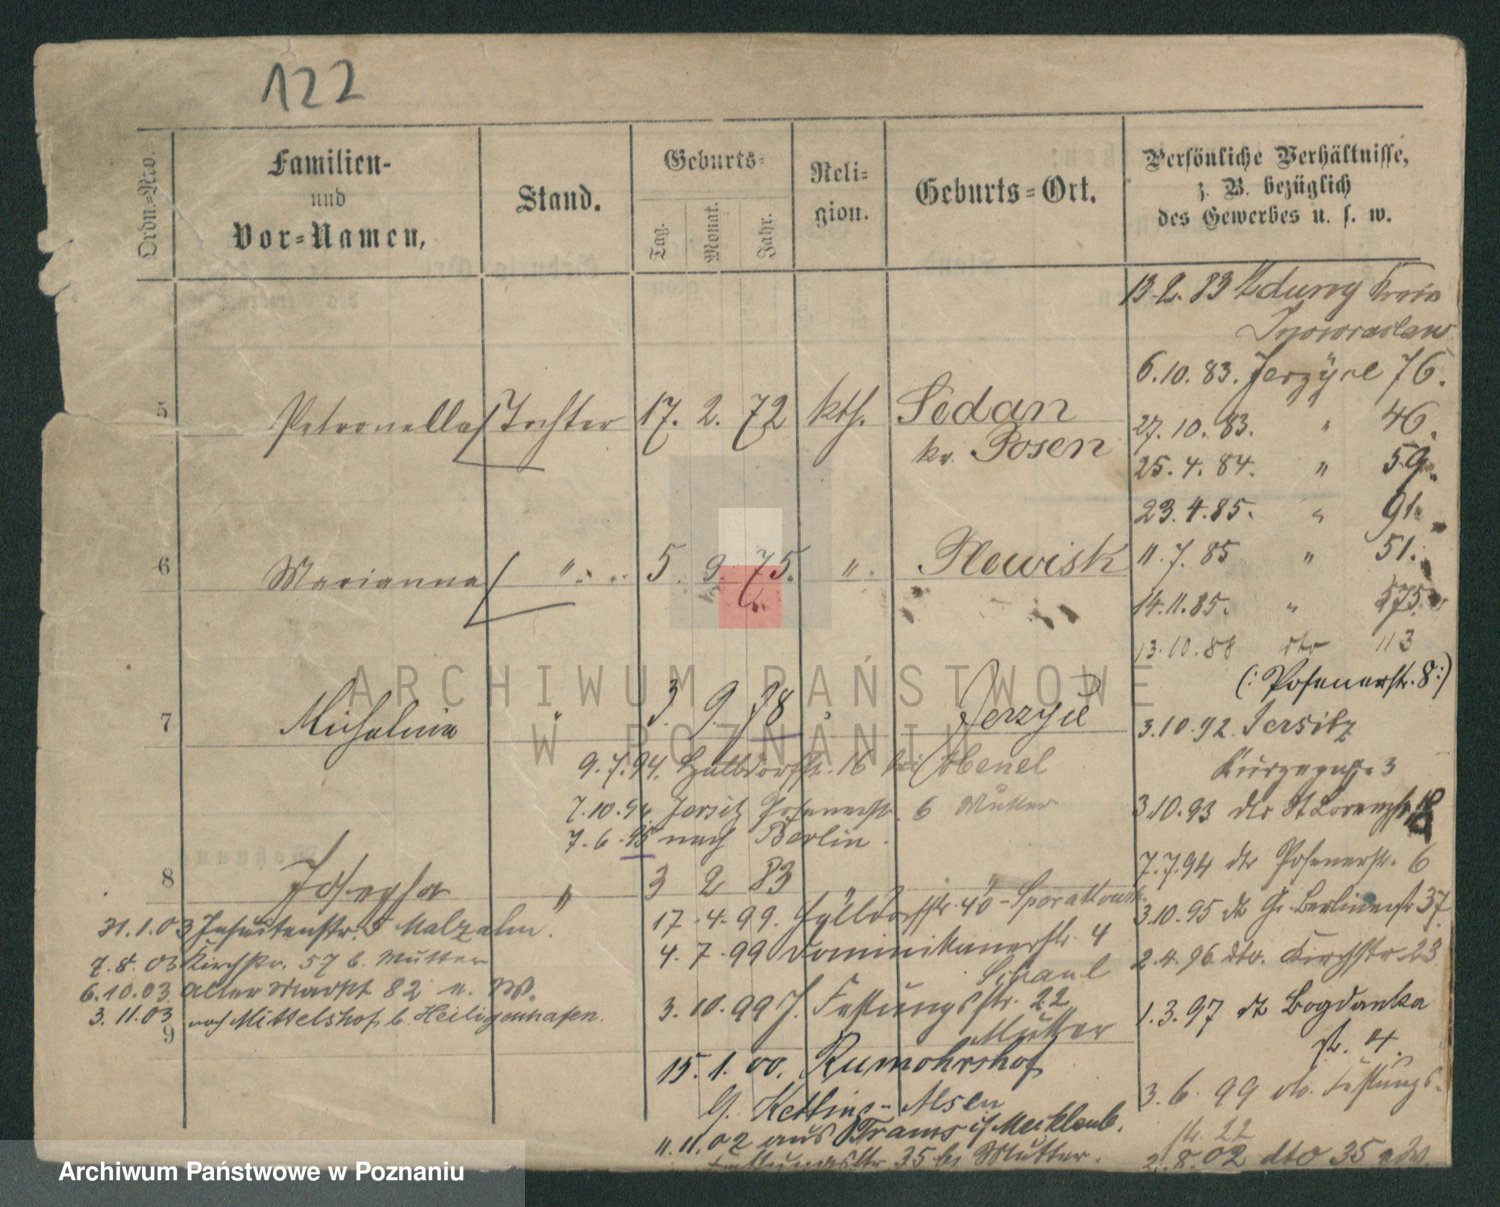 122
Ordn.-No.
Familien-
und
Vor-Namen,
Stand.
Geburts-
Tag.
Monat.
Jahr.
Reli-
gion.
Geburts-Ort.
Persönliche Verhältnisse,
z. B. bezüglich
des Gewerbes u. s. w.
13.2.83 Zduny
6.10.83. Jerzyce 76.
5 Petronella Tochter 17. 2. 72 kth. Sedan
kr. Posen
27.10.83. " 46.
25.4.84. " 59.
23.4.85. " 91.
6 Marianna " 5. 9. 75. " Plewisk
11.7.85 " 51.
14.11.85. " 575.
13.10.88 dto 113
(: Posenerstr. 8 :)
7 Michalina " 3. 9. 78 " Jerzyce
3.10.92. Jersitz
9.7.94. 16 bei
3
7.10.94. Jersitz Posenerstr. 6 Mutter
3.10.93 dto St Lorenzstr.
7.6.95 nach Berlin.
7.7.94 dto Posenerstr. 6
8 Josepha " 3 2 83
17.4.99. 40
3.10.95 dto Gr. Berlinerstr 37
21.1.03 Jesuitenstr. 5 Malzahn.
4.7.99 Dominikanerstr. 4
2.4.96. dto. Kirchstr 23
7.8.03 Kirchstr. 57 b. Mutter
6.10.03. Alter Markt 82
3.10.99 J. Festungsstr. 22
Mutter
1.3.97 dto Bogdanka
str. 4.
3.11.03 nach Mittelshof b. Heiligenhafen.
9
15.1.00. Rumohrshof
Alsen
3.6.99 dto. Festungs-
str. 22
11.11.02 aus Trams i/ Mecklenb.
Festungsstr. 35 bei Mutter.
2.8.02 dto 35
ARCHIWUM PAŃSTWOWE
W POZNANIU
Archiwum Państwowe w Poznaniu